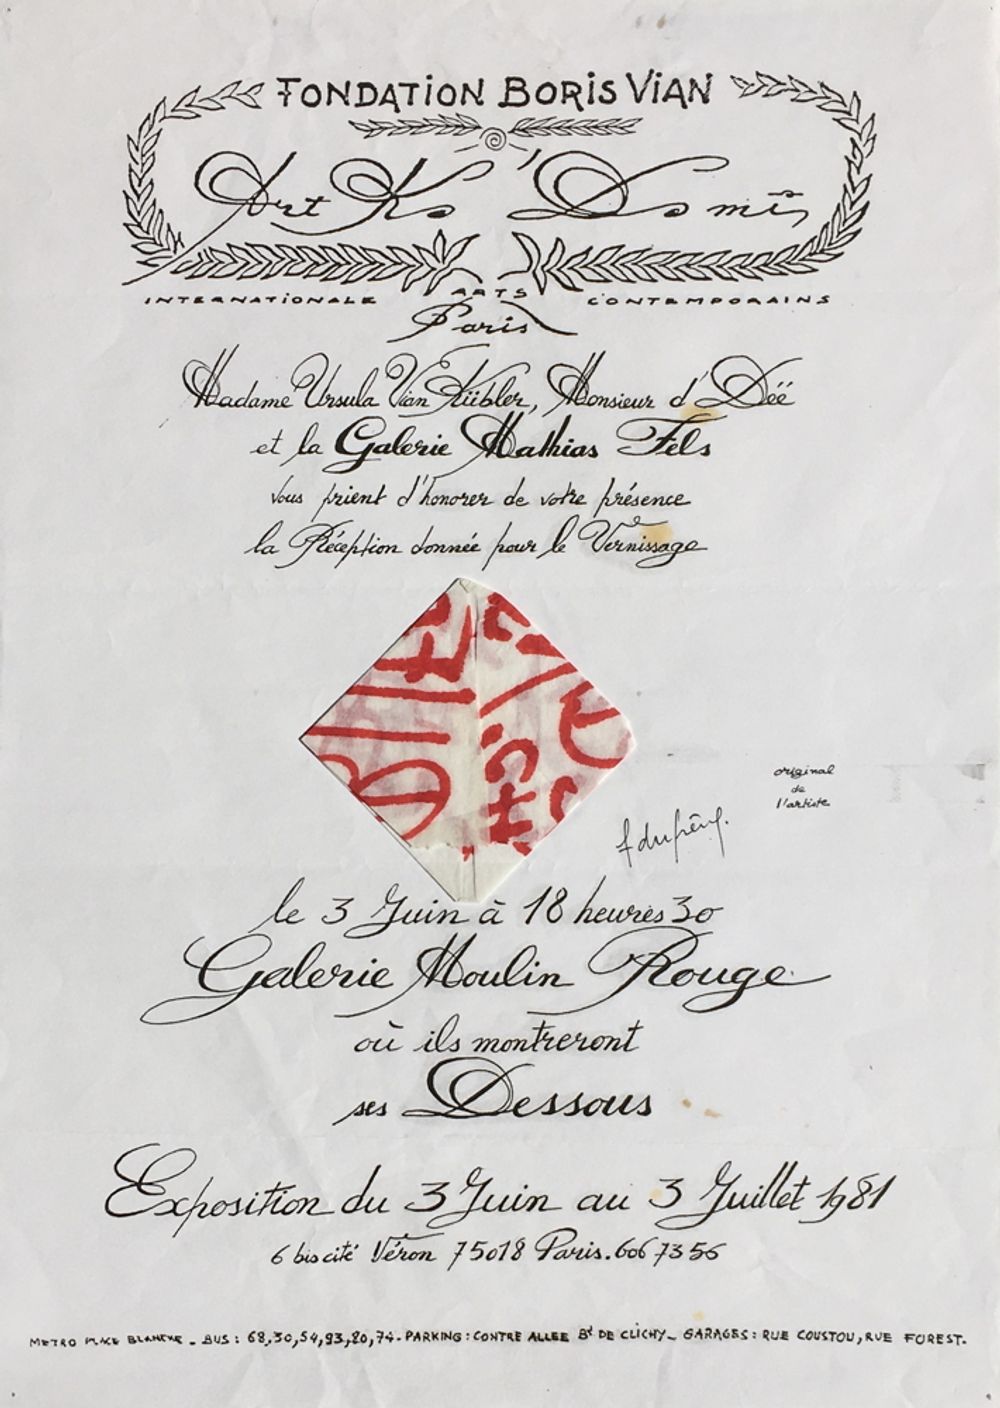 FONDATION BORIS VIAN
Art Ko 'Domin
INTERNATIONALE ARTS CONTEMPORAINS
Paris
Madame Ursula Vian Kübler, Monsieur d'Déé
et la Galerie Mathias Fels
vous prient d'honorer de votre présence
la Réception donnée pour le Vernissage
original
de
l'artiste
f dufrêne.
le 3 Juin à 18 heures 30
Galerie Moulin Rouge
où ils montreront
ses Dessous
Exposition du 3 Juin au 3 Juillet 1981
6 bis cité Véron 75018 Paris. 606 73 56
METRO PLACE BLANCHE _ BUS : 68,30,54,93,80,74 - PARKING : CONTRE ALLEE Bd DE CLICHY _ GARAGES : RUE COUSTOU, RUE FOREST.